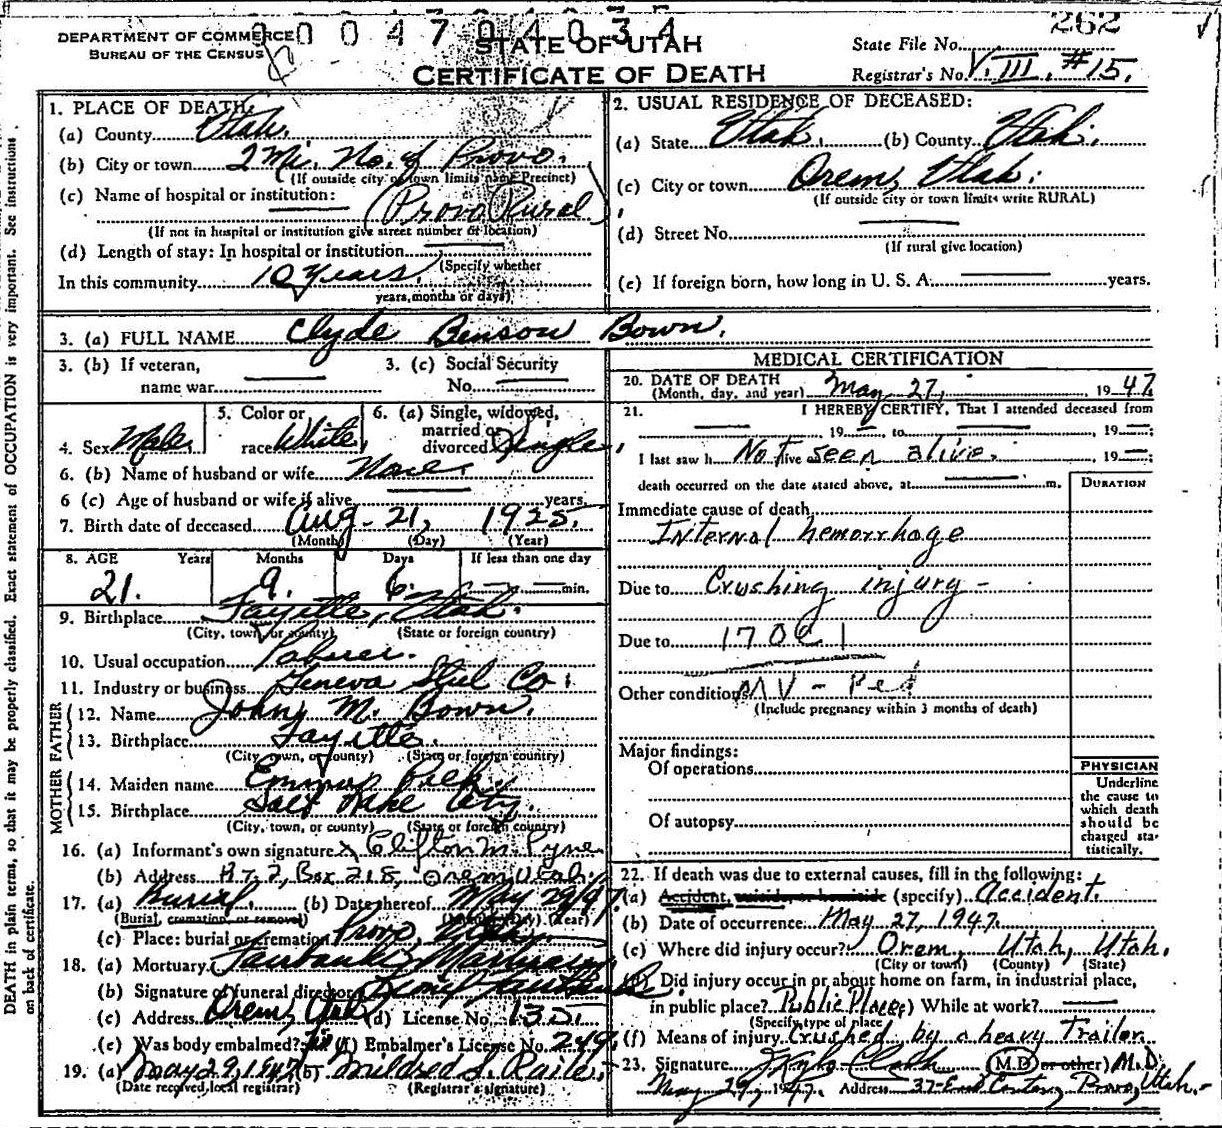 0004704034
262
DEPARTMENT OF COMMERCE
BUREAU OF THE CENSUS
STATE OF UTAH
CERTIFICATE OF DEATH
State File No.
Registrar's No. VIII, #15.
1. PLACE OF DEATH:
(a) County Utah.
(b) City or town 2 Mi. No. of Provo.
(If outside city or town limits name Precinct)
(c) Name of hospital or institution:
(Provo Rural)
(If not in hospital or institution give street number or location)
(d) Length of stay: In hospital or institution
(Specify whether
In this community 10 years.
years, months or days)
2. USUAL RESIDENCE OF DECEASED:
(a) State Utah. (b) County Utah.
(c) City or town Orem, Utah.
(If outside city or town limits write RURAL)
(d) Street No.
(If rural give location)
(e) If foreign born, how long in U. S. A. years.
3. (a) FULL NAME Clyde Benson Bown.
3. (b) If veteran, name war
3. (c) Social Security No.
4. Sex Male.
5. Color or race White.
6. (a) Single, widowed, married or divorced Single.
6. (b) Name of husband or wife None.
6 (c) Age of husband or wife if alive years.
7. Birth date of deceased Aug. 21, 1925.
(Month) (Day) (Year)
8. AGE Years Months Days If less than one day
21. 9. 6. min.
9. Birthplace Fayette, Utah.
(City, town, or county) (State or foreign country)
10. Usual occupation
11. Industry or business Geneva Steel Co.
FATHER
12. Name John M. Bown.
13. Birthplace Fayette.
(City, town, or county) (State or foreign country)
MOTHER
14. Maiden name Emma
15. Birthplace Salt Lake City.
(City, town, or county) (State or foreign country)
16. (a) Informant's own signature x Clifton M. Pyne
(b) Address R.T. 2, Box 218, Orem Utah.
17. (a) Burial (b) Date thereof May 29/47.
(Burial, cremation, or removal) (Month) (Day) (Year)
(c) Place: burial or cremation Provo, Utah.
18. (a) Mortuary Fairbanks Mortuary
(b) Signature of funeral director
(c) Address Orem, Utah (d) License No. 135.
(e) Was body embalmed? (f) Embalmer's License No. 249.
19. (a) May 29, 1947 (b) Mildred
(Date received local registrar) (Registrar's signature)
MEDICAL CERTIFICATION
20. DATE OF DEATH
(Month, day, and year) May 27, 1947.
21. I HEREBY CERTIFY, That I attended deceased from
19 to , 19 ;
I last saw h Not live seen alive. , 19 ;
death occurred on the date stated above, at m.
DURATION
Immediate cause of death
Internal hemorrhage
Due to Crushing injury -
Due to 170C1
Other conditions MV - Ped
(Include pregnancy within 3 months of death)
Major findings:
Of operations
Of autopsy
PHYSICIAN
Underline
the cause to
which death
should be
charged sta-
tistically.
22. If death was due to external causes, fill in the following:
(a) Accident, suicide, or homicide (specify) Accident.
(b) Date of occurrence May 27, 1947.
(c) Where did injury occur? Orem, Utah, Utah.
(City or town) (County) (State)
(d) Did injury occur in or about home on farm, in industrial place,
in public place? Public Place (e) While at work?
(Specify type of place)
(f) Means of injury Crushed by a heavy Trailer
23. Signature Clark (M.D. or other) M.D.
May 29, 1947. Address Provo, Utah.
DEATH in plain terms, so that it may be properly classified. Exact statement of OCCUPATION is very important. See instructions
on back of certificate.